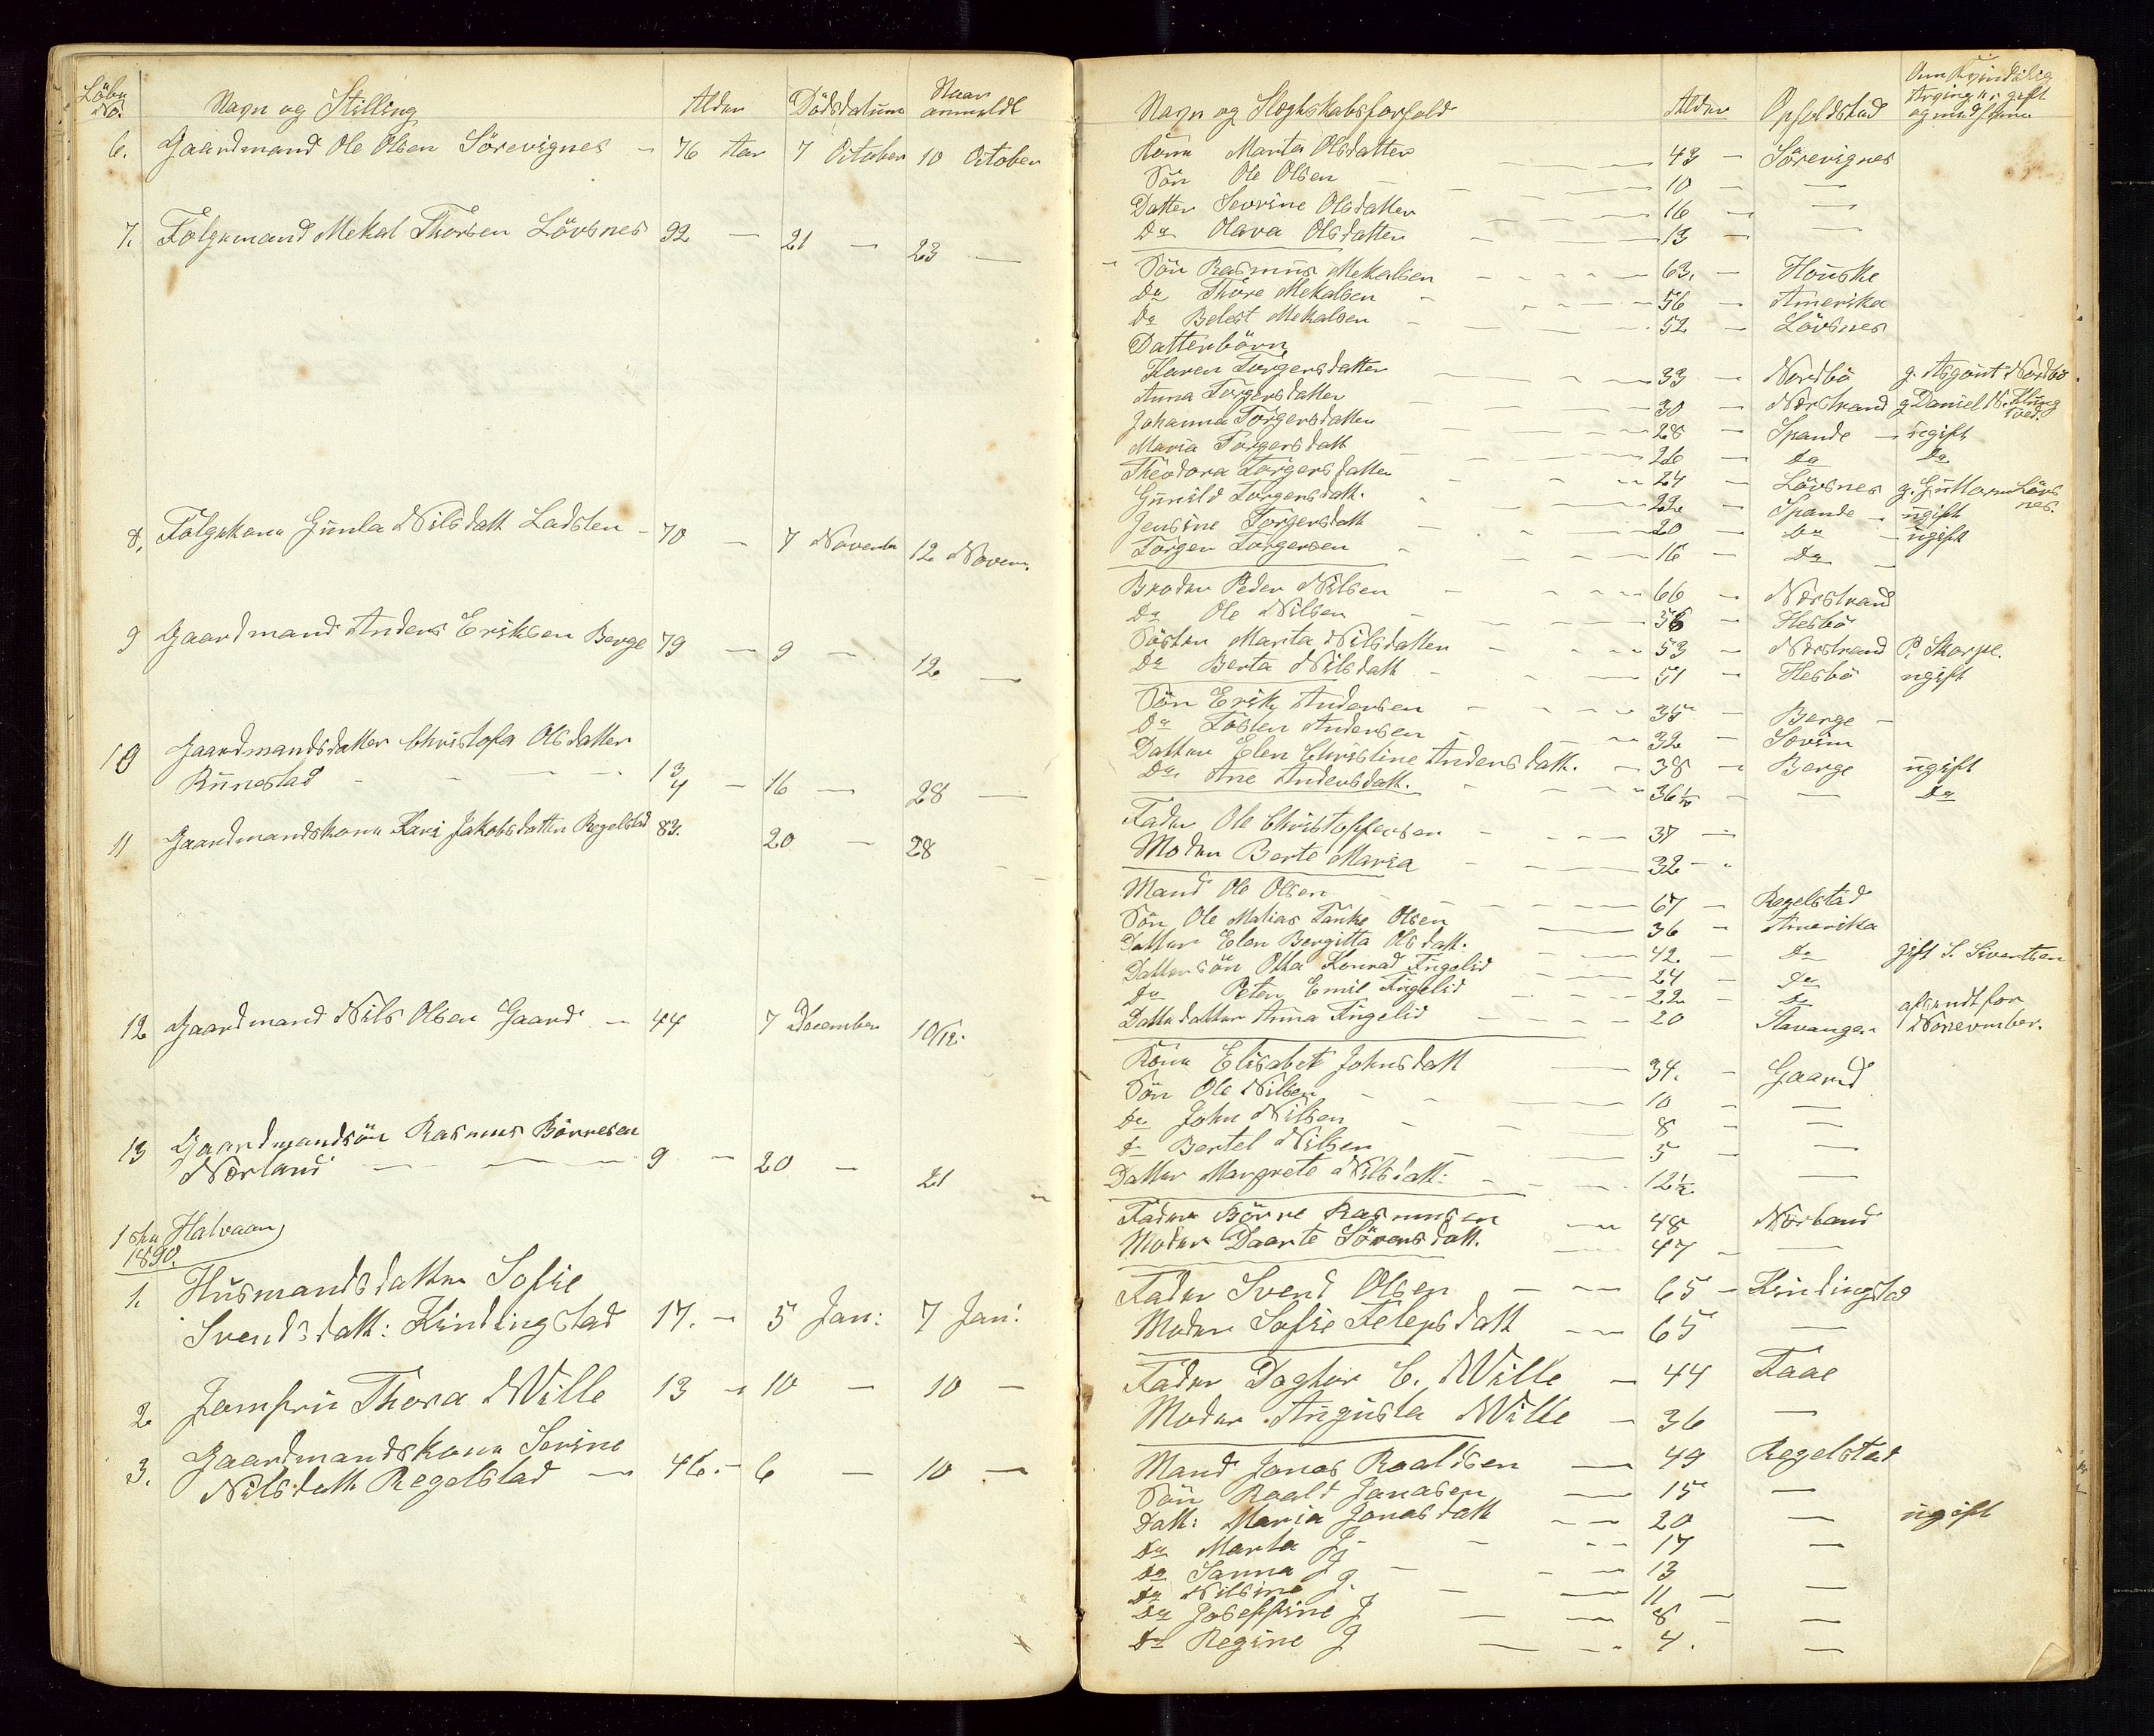 Löbe No. Navn og Stilling Alder Dödsdatum Naar anmeldt
6. Gaardmand Ole Olsen Sörevignes - 76 Aar 7 October 10 October
7. Fölgemand Mekal Thorsen Lövsnes 92 — 21 — 23 —
8. Folgekone Gunla Nilsdatt Ladsten - 70 — 7 Novemb 12 Novem.
9 Gaardmand Anders Eriksen Berge 79 — 9 — 12 —
10 Gaardmandsdatter Christofa Olsdatter
Runestad - 13/4 — 16 — 28 —
11 Gaardmandskone Kari Jakobsdatter Regelstad 83. 20 — 28
12 Gaardmand Nils Olsen Gaard — 44 7 December 10/12.
13 Gaardmandsön Rasmus Börresen
Nørland — 9 — 20 — 21
1ste Halvaar
1890.
1. Husmandsdatter Sofie
Svendsdatt: Kindingstad 17. — 5 Jan: 7 Jan:
2 Jomfru Thora Wille 13 — 10 — 10 —
3. Gaardmandskone Serine
Nilsdatt Regelstad — 46. - 6 — 10 —
Navn og Slegtskabsforhold Alder Opholdstad Om Kvindelig
Arving er gift
og med hvem
Kone Marta Olsdatter 43 — Sörevignes
Sön Ole Olsen 10 — —
Datter Sevrine Olsdatter 16 — —
Do Olava Olsdatter 13 — —
Sön Rasmus Mekalsen 63. — Houske
Do Thore Mekalsen 56 — Amerika
Do Belest Mekalsen 52 — Lövsnes
Datterbörn
Karen Torgersdatter 33 — Nordbö g. Asgout Nordbö.
Anna Torgersdatter 30 — Nærstrand g. Daniel N. Klung
tved.
Johanna Torgersdatter 28 — Spande — ugift
Maria Torgersdatt 26 — Do Do
Theodora Torgersdatter 24 — Lövsnes g. Guttorm Lövs
nes.
Gunild Torgersdatt. 22 — Spande — ugift
Jensine Torgersdatt 20 — Do — ugift
Torger Torgersen 16 — Do —
Broder Peder Nilsen 66 — Nærstrand
Do Ole Nilsen 56 — Hesbö
Söster Marta Nilsdatter 53 — Nærstrand P. Skorpe.
Do Berta Nilsdatt 51 — Hesbö ugift
Sön Erik Andersen 35 — Berge —
Do Tosten Andersen 32 — Sovim
Datter Elen Christine Andersdatt. — 38 — Berge ugift
Do. Ane Andersdatt. 36 1/2 — — Do
Fader Ole Christoffersen 37 —
Moder Berte Maria 32 —
Mand Ole Olsen 67 — Regelstad
Sön Ole Matias Tanke Olsen 36 — Amerika
Datter Elen Bergitta Olsdatt. 42 — Do gift S. Sivertsen
Dattersön Otto Konrad Tingelid 24 — Do
Do Peter Emil Tingelid 22 — Do afsendt for
Datterdatter Anna Tingelid 20 Stavanger Nonevmber.
Kone Elisabet Johnsdatt 34. — Gaard
Sön Ole Nilsen 10 — —
Do John Nilsen 8 — —
Do Bertel Nilsen 5 — —
Datter Margrete Nilsdatt: 12 1/2 —
Fader Börre Rasmussen 48 Nörland
Moder Daarte Sörensdatt. 47 — —
Fader Svend Olsen 65 — Kindingstad
Moder Sofie Felepsdatt 65 —
Fader Doghor C. Wille — 44 Faae
Moder Augusta Wille — 36 —
Mand Jonas Roaldsen — 49 Regelstad
Sön Roald Jonasen 15 —
Datt: Maria Jonasdatt 20 — ugift
Do Marta J 17 —
Do Sanna J 13
Do Nilsine J. 11 — —
Do Joseffine J 8 — —
Do Regine J 4. —